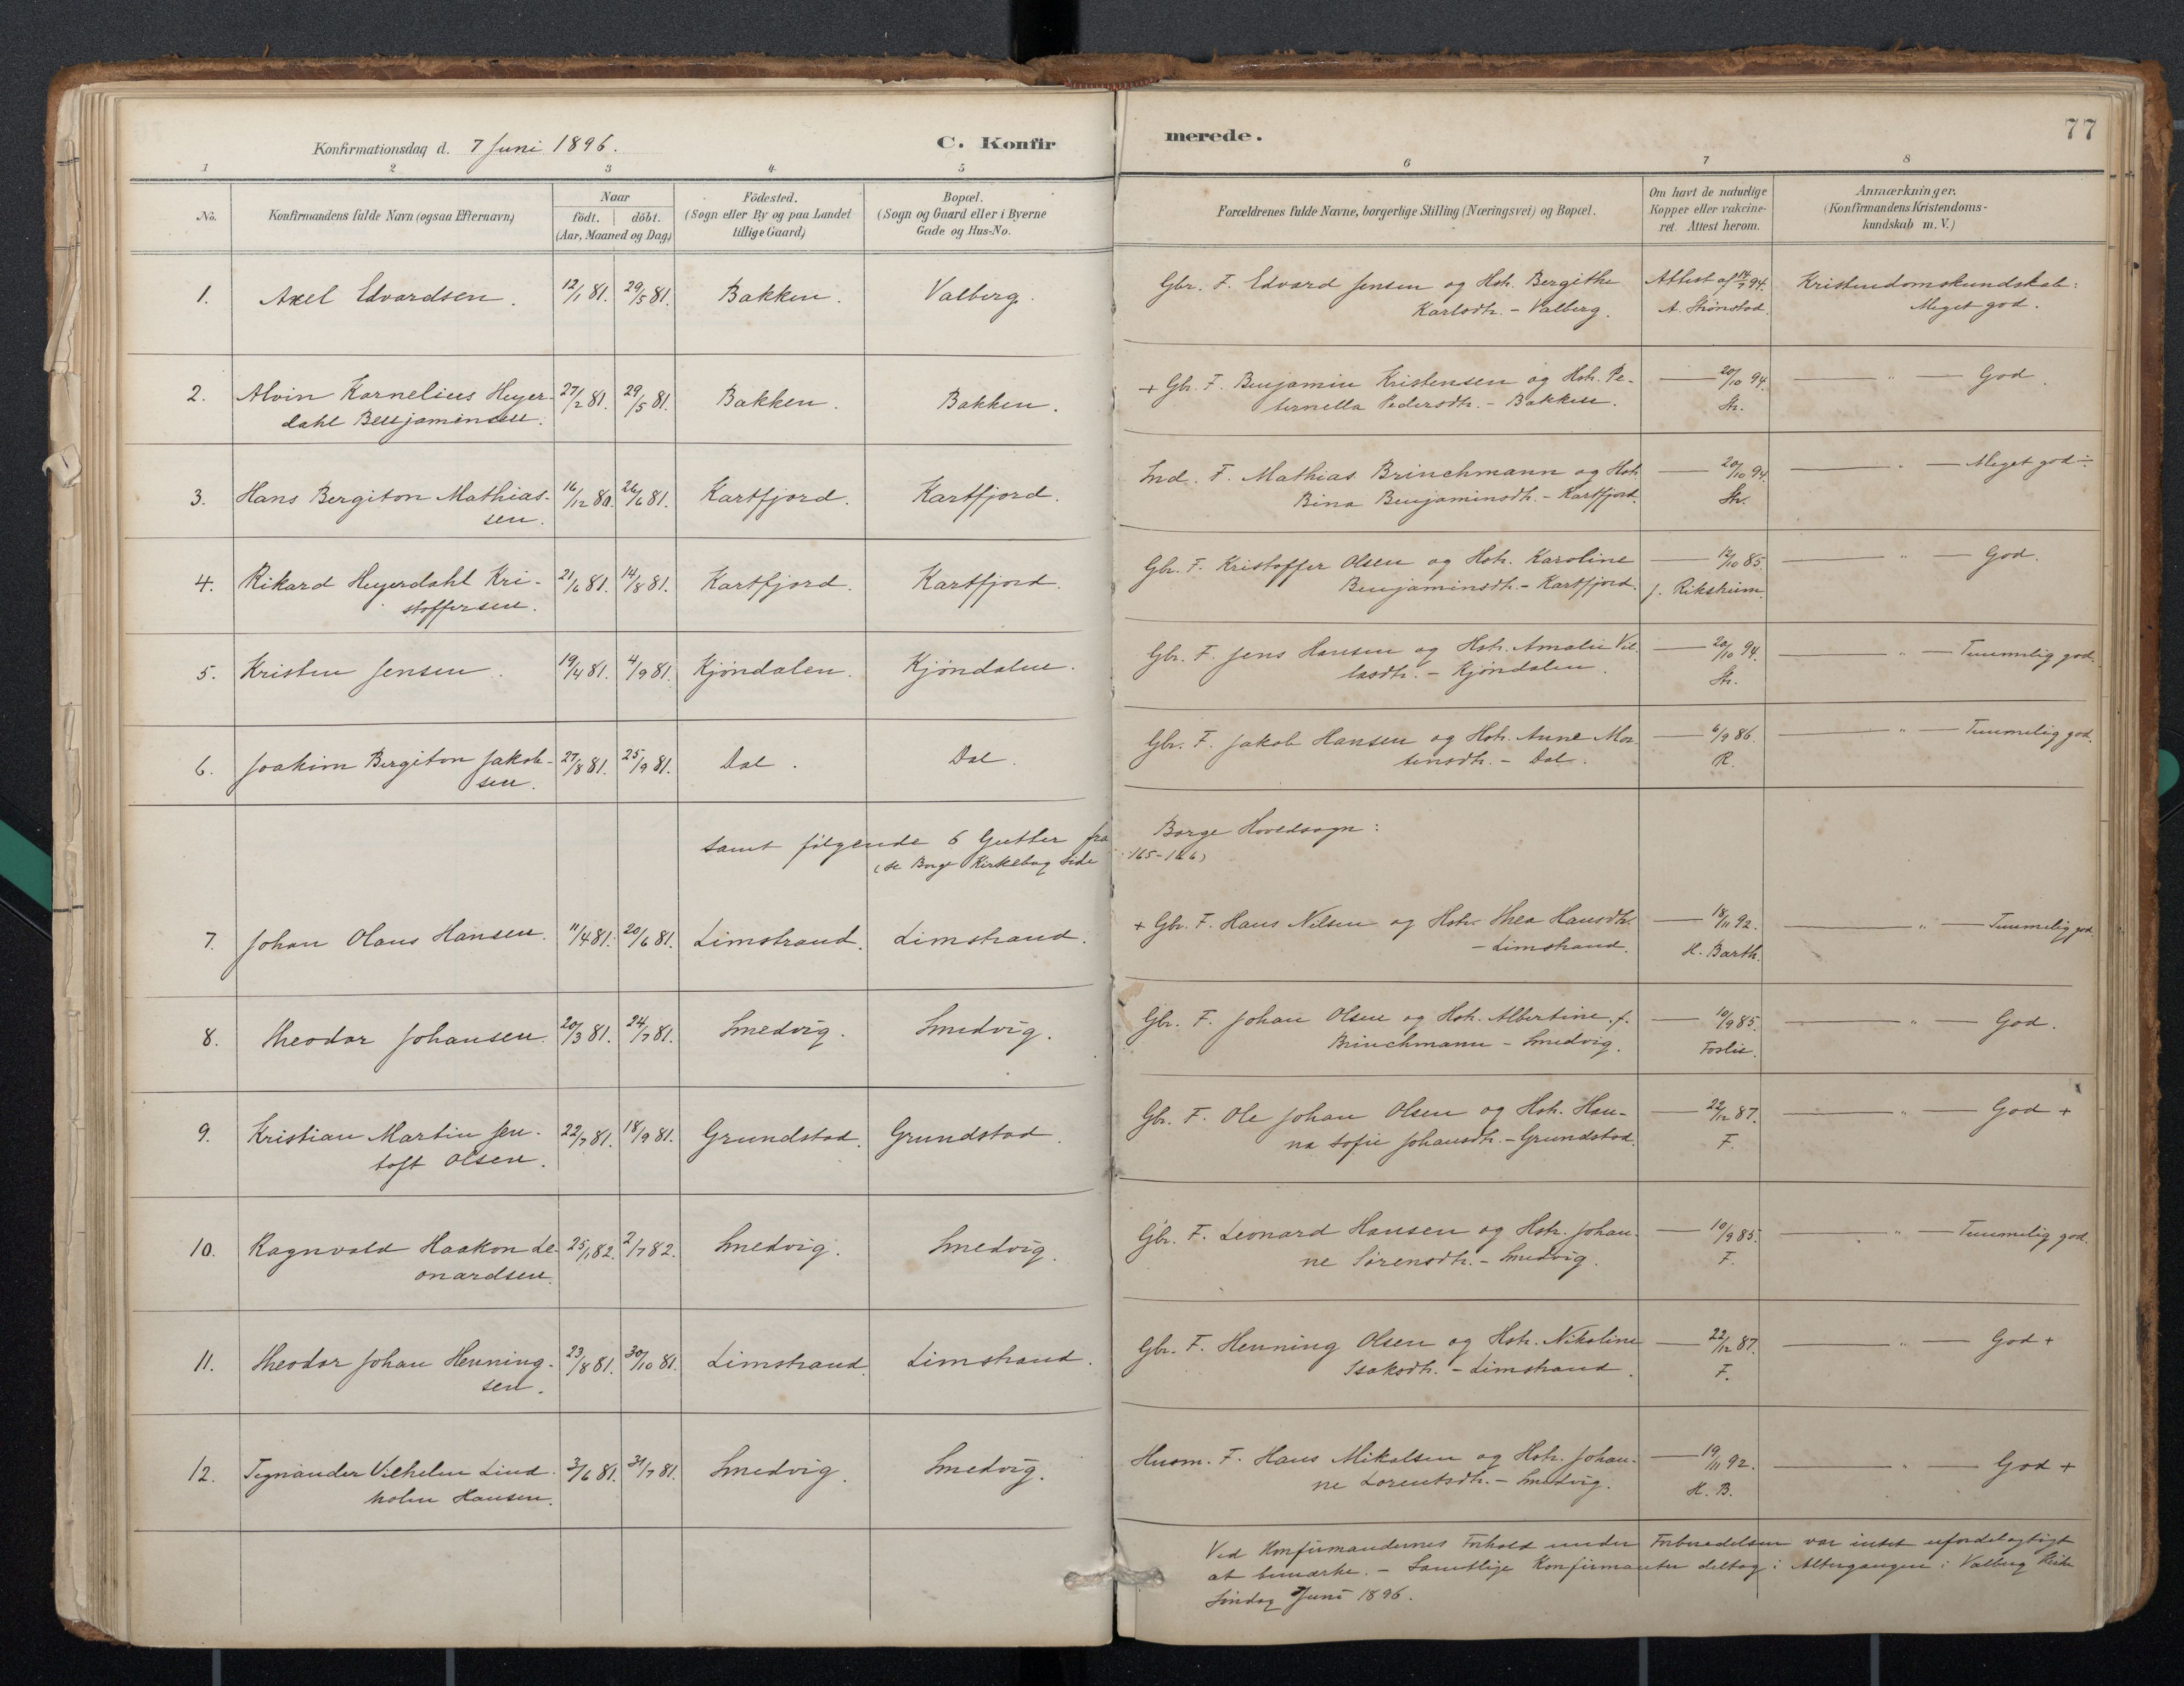 Konfirmationsdag d. 7 Juni 1896.
C. Konfir
merede.
77
1 2 3 4 5 6 7 8
No.
Konfirmandens fulde Navn (ogsaa Efternavn)
Naar
födt. döbt.
(Aar, Maaned og Dag)
Födested.
(Sogn eller By og paa Landet
tillige Gaard)
Bopæl.
(Sogn og Gaard eller i Byerne
Gade og Hus-No.
Forældrenes fulde Navne, borgerlige Stilling (Næringsvei) og Bopæl.
Om havt de naturlige
Kopper eller vakcine-
ret. Attest herom.
Anmærkninger.
(Konfirmandens Kristendoms-
kundskab m. V.)
1. Axel Edvardsen. 12/1 81. 29/5 81. Bakken. Valberg. Gbr. F. Edvard Jensen og Hstr. Bergithe Attest af 14/7 94. Kristendomskundskab:
Karlsdtr. - Valberg. A. Strønstad. Meget god.
2. Alvin Kornelius Heyer- 27/2 81. 29/5 81. Bakken. Bakken. + Gbr. F. Benjamin Kristensen og Hstr. Pe- — 20/10 94. — „ — God.
dahl Benjaminsen. ternella Pedersdtr. - Bakken. Str.
3. Hans Bergiton Mathias- 16/12 80. 26/6 81. Kartfjord. Kartfjord. Ind. F. Mathias Brinchmann og Hstr. — 20/10 94. — „ — Meget god ÷
sen. Bina Benjaminsdtr. - Kartfjord. Str.
4. Rikard Heyerdahl Kri- 21/6 81. 14/8 81. Kartfjord. Kartfjord. Gbr. F. Kristoffer Olsen og Hstr. Karoline — 12/10 85. — „ — God.
stoffersen. Benjaminsdtr. - Kartfjord. J. Rikstrum.
5. Kristen Jensen. 19/4 81. 4/9 81. Kjøndalen. Kjøndalen. Gbr. F. Jens Hansen og Hstr. Amalie Vil- — 20/10 94. — „ — Temmelig god.
lasdtr. - Kjøndalen. Str.
6. Joakim Bergiton Jakob- 27/8 81. 25/9 81. Dal. Dal. Gbr. F. Jakob Hansen og Hstr. Anne Mor- — 6/9 86. — „ — Temmelig god.
sen. tensdtr. - Dal. R.
samt følgende 6 Gutter fra Borge Hovedsogn:
(se Borge Kirkebog Side 165-166)
7. Johan Olaus Hansen. 11/4 81. 20/6 81. Limstrand. Limstrand. + Gbr. F. Hans Nilsen og Hstr. Thea Hansdtr. — 18/11 92. — „ — Temmelig god.
- Limstrand. H. Barth.
8. Theodor Johansen. 20/3 81. 24/7 81. Smedvig. Smedvig. Gbr. F. Johan Olsen og Hstr. Albertine f. — 10/9 85. — „ — God.
Brinchmann - Smedvig. Foslie.
9. Kristian Martin Jen- 22/7 81. 18/9 81. Grundstad. Grundstad. Gbr. F. Ole Johan Olsen og Hstr. Han- — 22/12 87. — „ — God +
toft Olsen. na Sofie Johansdtr. - Grundstad. F.
10. Ragnvald Haakon Le- 25/1 82. 2/7 82. Smedvig. Smedvig. Gbr. F. Leonard Hansen og Hstr. Johan- — 10/9 85. — „ — Temmelig god.
onardsen. ne Sørensdtr. - Smedvig. F.
11. Theodor Johan Henning- 23/8 81. 30/10 81. Limstrand. Limstrand. Gbr. F. Henning Olsen og Hstr. Nikoline — 22/12 87. — „ — God +
sen. Isaksdtr. - Limstrand. F.
12. Tegnander Vilhelm Lind- 3/6 81. 31/7 81. Smedvig. Smedvig. Husm. F. Hans Mikalsen og Hstr. Johan- — 19/11 92. — „ — God +
holm Hansen. ne Lorentsdtr. - Smedvig. H. B.
Ved Konfirmandernes Forhold under Forberedelsen var intet ufordelagtigt
at bemærke. - Samtlige Konfirmanter deltog i Altergangen i Valberg Kirke
Søndag 7 Juni 1896.